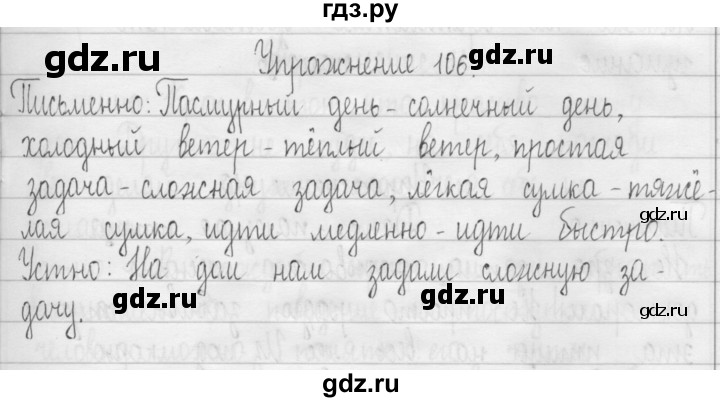 гдз.ру
gdz.ru
gdz.ru
Упражнение 106.
Письменно: Пасмурный день - солнечный день,
холодный ветер - тёплый ветер, простая
gdz.ru
gdz.ru
задача - сложная задача, лёгкая сумка - тяжё-
gdz.ru
лая сумка, идти медленно - идти быстро.
Устно: На дом нам задали сложную за-
gdz.ru
gdz.ru
gdz.ru
дачу.
gdz.ru